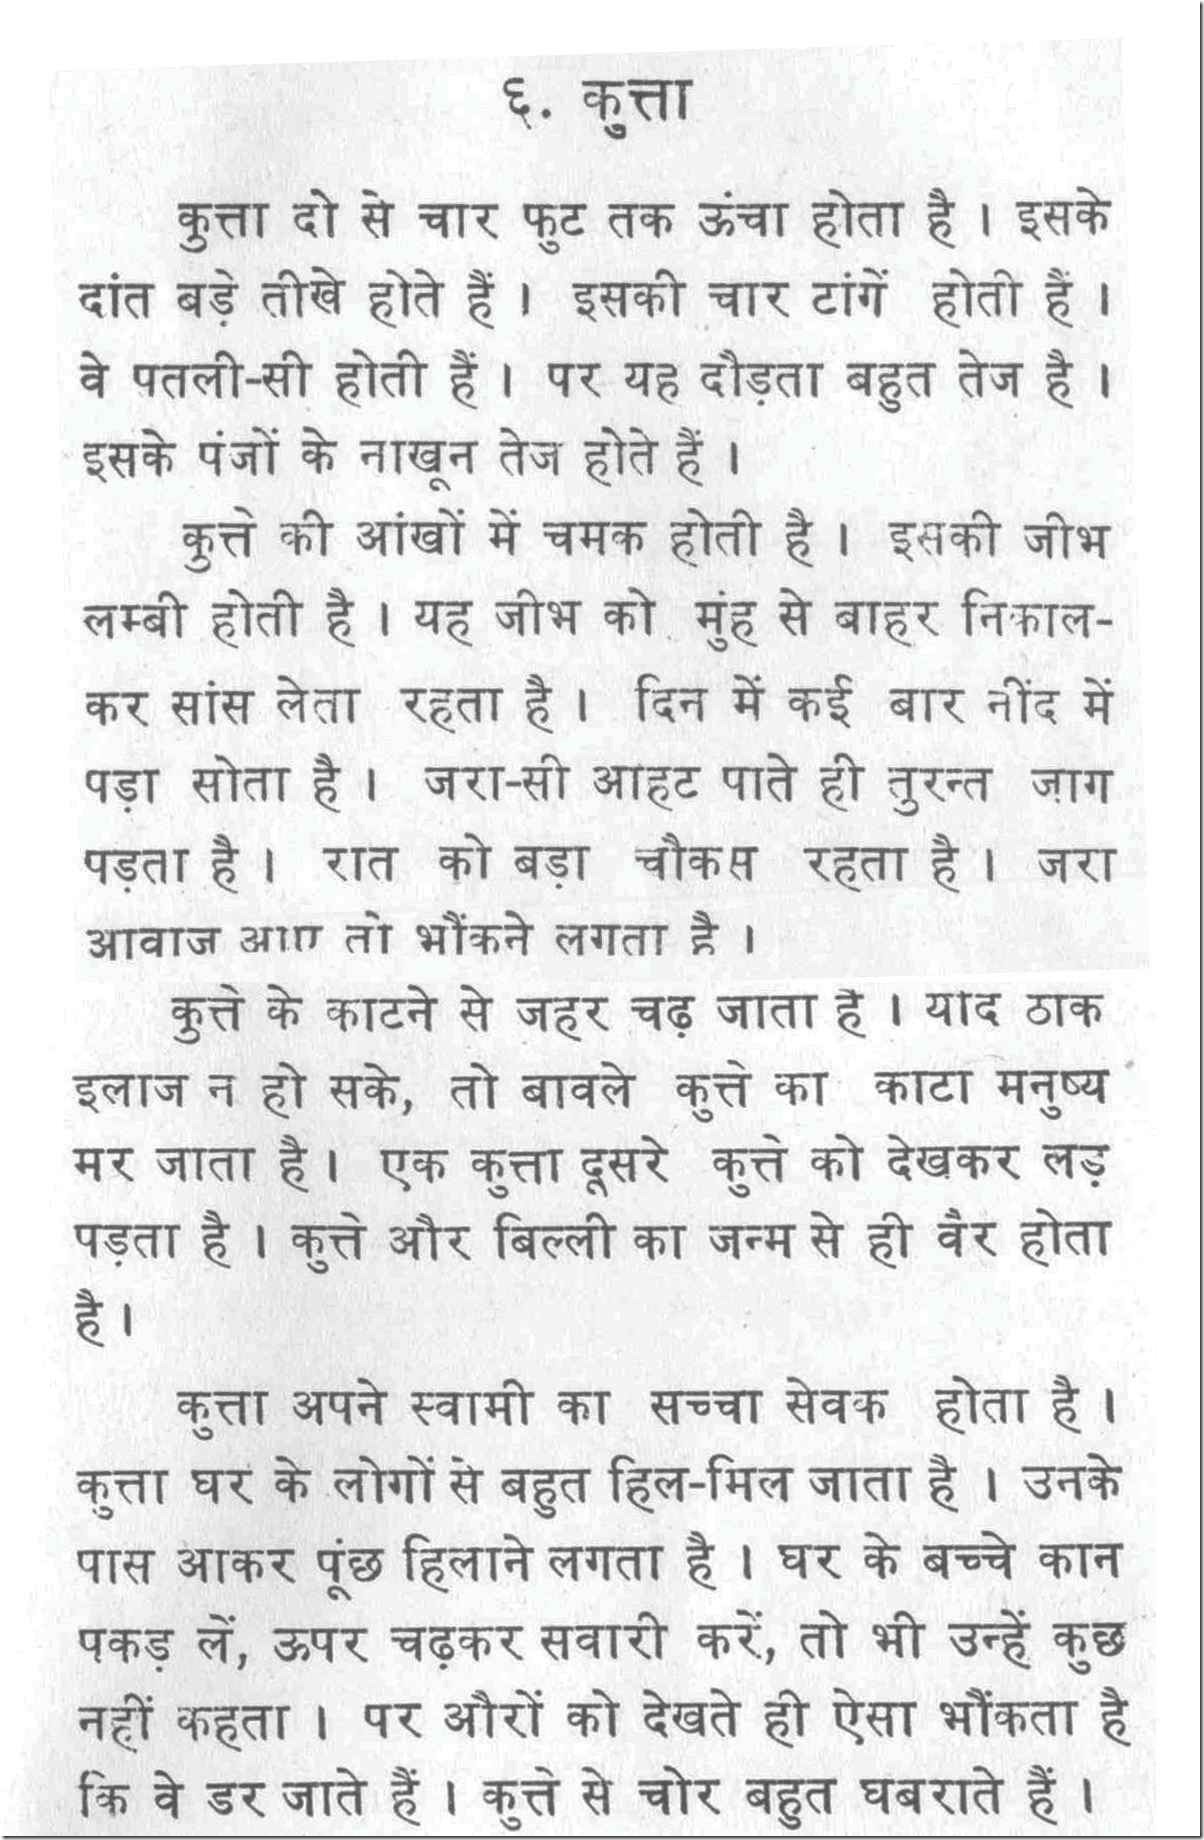 ६. कुत्ता
कुत्ता दो से चार फुट तक ऊंचा होता है । इसके
दांत बड़े तीखे होते हैं । इसकी चार टांगें होती हैं ।
वे पतली-सी होती हैं । पर यह दौड़ता बहुत तेज है ।
इसके पंजों के नाखून तेज होते हैं ।
कुत्ते की आंखों में चमक होती है । इसकी जीभ
लम्बी होती है । यह जीभ को मुंह से बाहर निकाल-
कर सांस लेता रहता है । दिन में कई बार नींद में
पड़ा सोता है । जरा-सी आहट पाते ही तुरन्त जाग
पड़ता है । रात को बड़ा चौकस रहता है । जरा
आवाज आए तो भौंकने लगता है ।
कुत्ते के काटने से जहर चढ़ जाता है । यदि ठीक
इलाज न हो सके, तो बावले कुत्ते का काटा मनुष्य
मर जाता है । एक कुत्ता दूसरे कुत्ते को देखकर लड़
पड़ता है । कुत्ते और बिल्ली का जन्म से ही वैर होता
है ।
कुत्ता अपने स्वामी का सच्चा सेवक होता है ।
कुत्ता घर के लोगों से बहुत हिल-मिल जाता है । उनके
पास आकर पूंछ हिलाने लगता है । घर के बच्चे कान
पकड़ लें, ऊपर चढ़कर सवारी करें, तो भी उन्हें कुछ
नहीं कहता । पर औरों को देखते ही ऐसा भौंकता है
कि वे डर जाते हैं । कुत्ते से चोर बहुत घबराते हैं ।